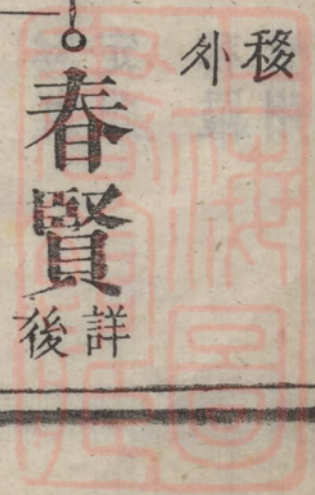 移外
春賢
詳後